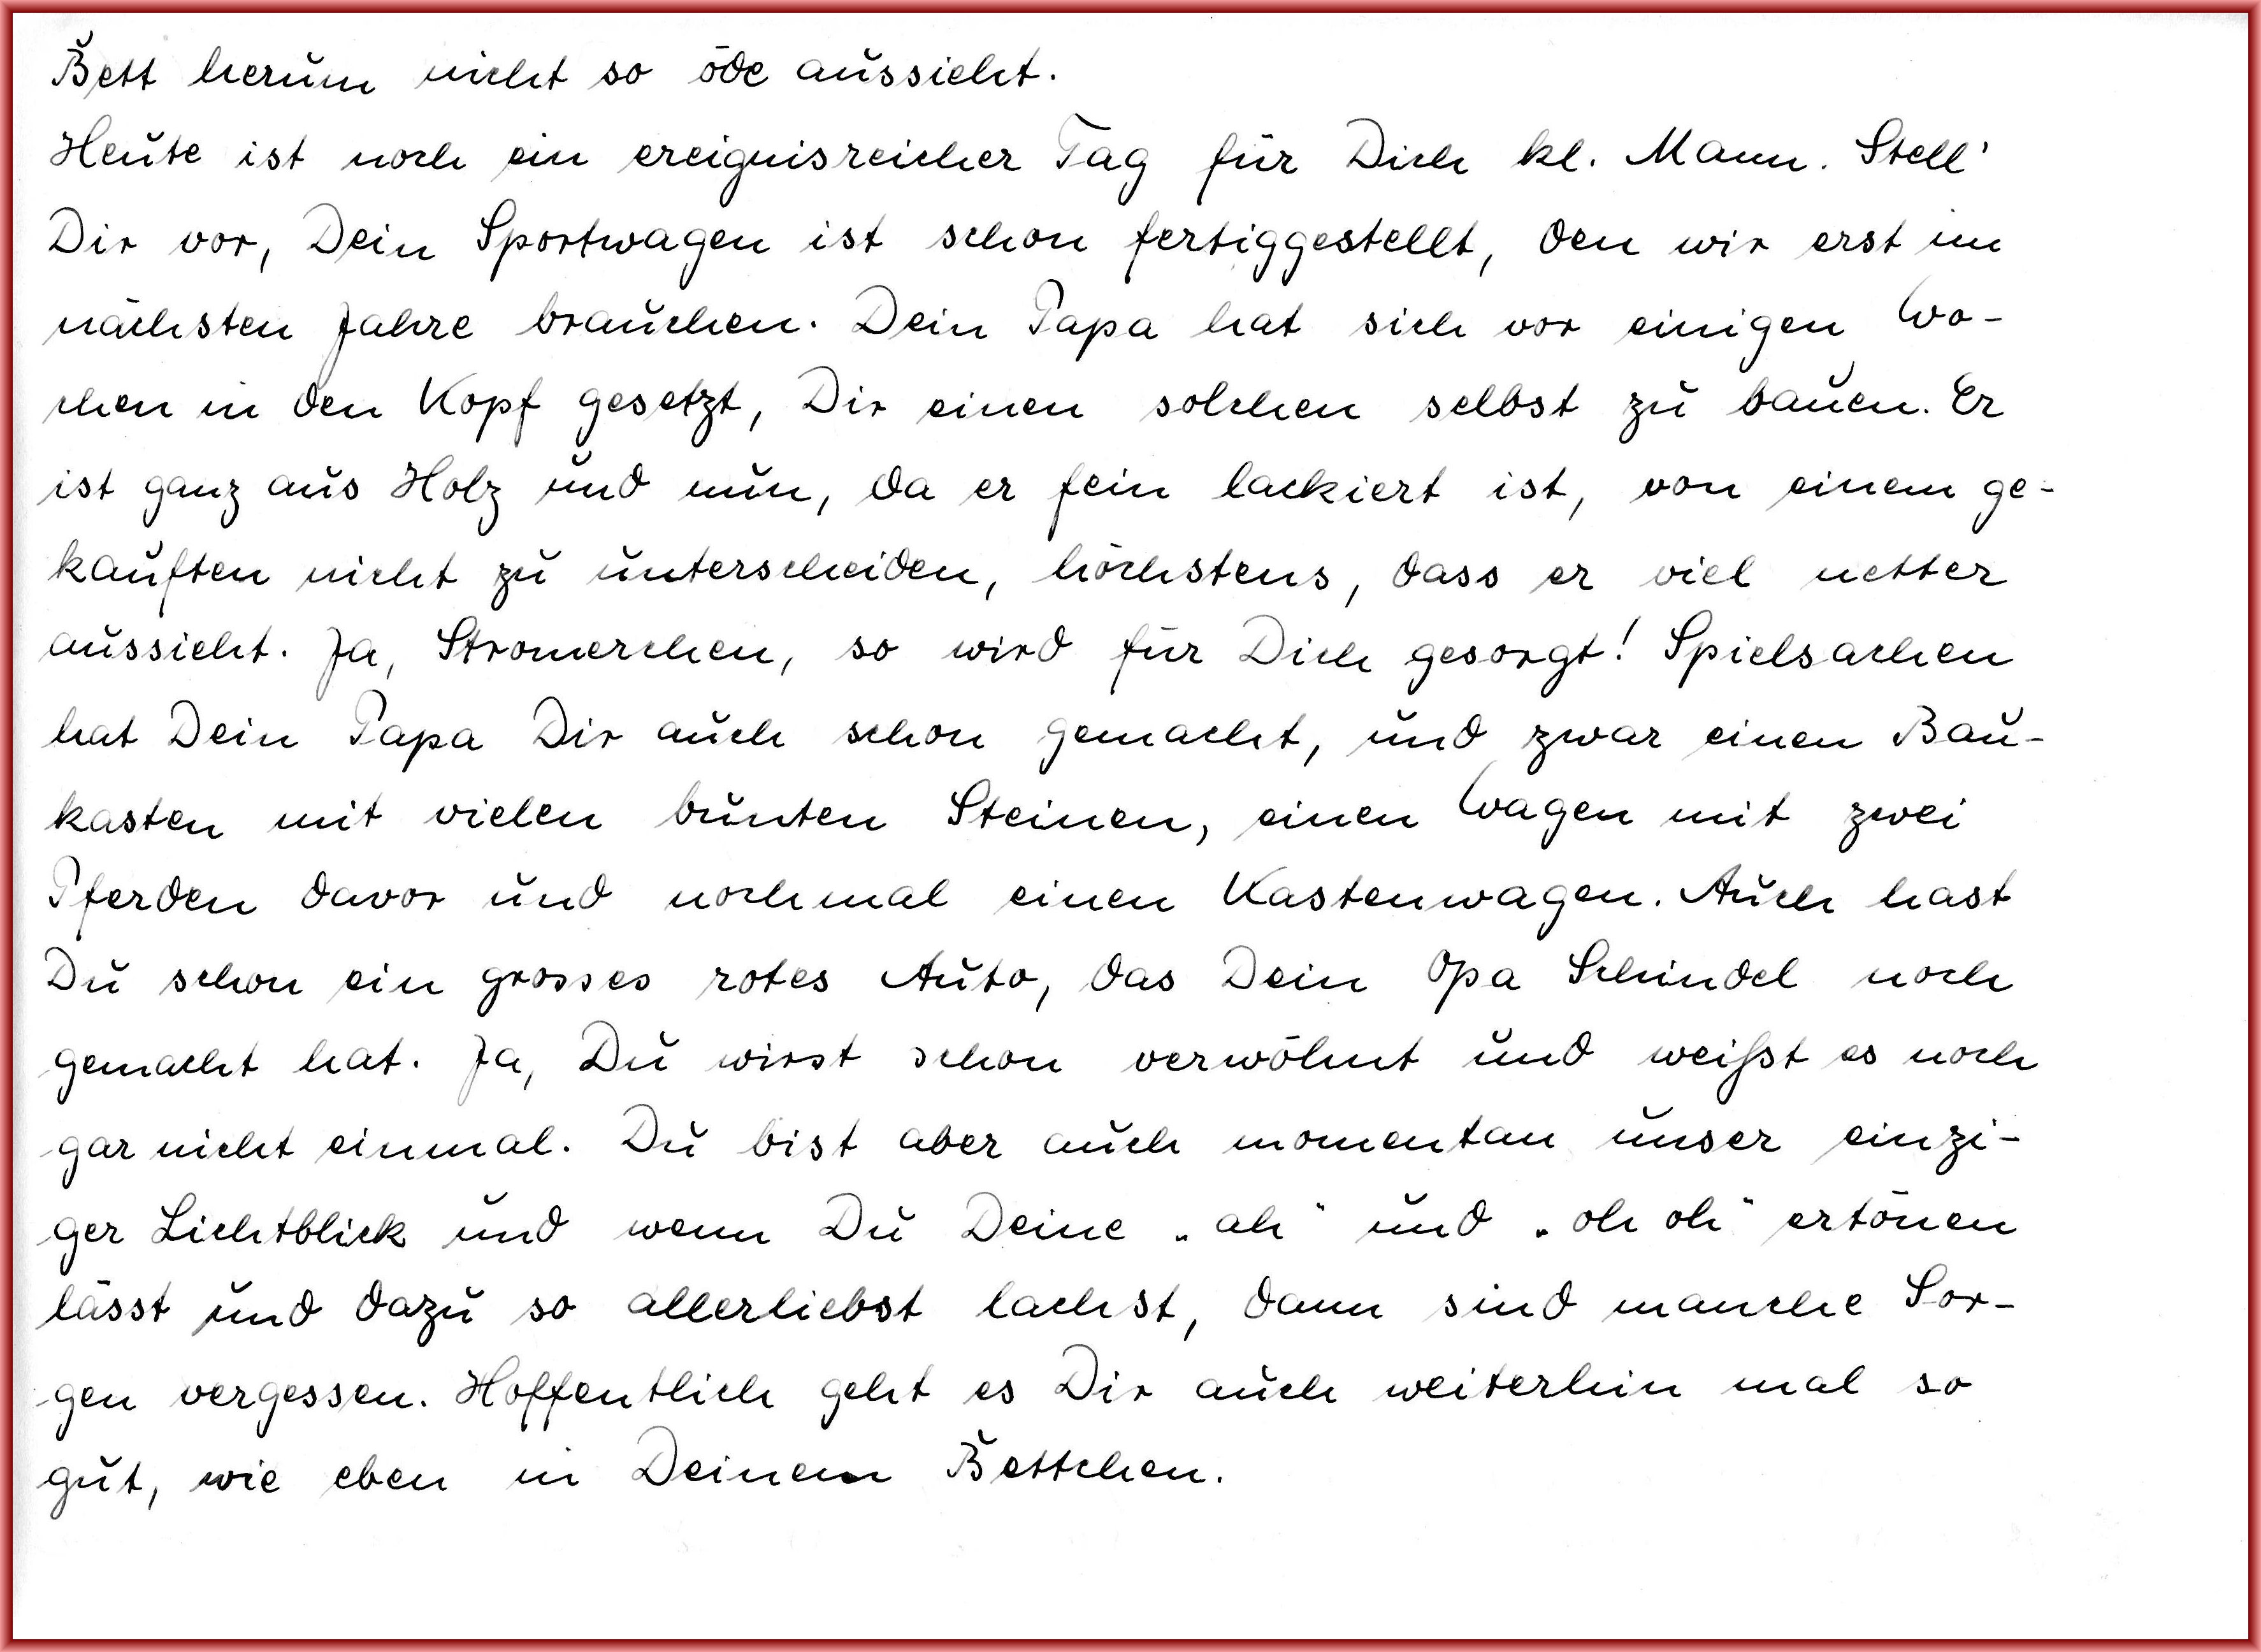 Bett herum nicht so öde aussieht.
Heute ist noch ein ereignisreicher Tag für Dich kl. Mann. Stell'
Dir vor, Dein Sportwagen ist schon fertiggestellt, den wir erst im
nächsten Jahre brauchen. Dein Papa hat sich vor einigen Wo-
chen in den Kopf gesetzt, Dir einen solchen selbst zu bauen. Er
ist ganz aus Holz und nun, da er fein lackiert ist, von einem ge-
kauften nicht zu unterscheiden, höchstens, dass er viel netter
aussieht. Ja, Stromerchen, so wird für Dich gesorgt! Spielsachen
hat Dein Papa Dir auch schon gemacht, und zwar einen Bau-
kasten mit vielen bunten Steinen, einen Wagen mit zwei
Pferden davor und nochmal einen Kastenwagen. Auch hast
Du schon ein grosses rotes Auto, das Dein Opa Schindel noch
gemacht hat. Ja, Du wirst schon verwöhnt und weißt es noch
gar nicht einmal. Du bist aber auch momentan unser einzi-
ger Lichtblick und wenn Du Deine „ah" und „oh oh" ertönen
lässt und dazu so allerliebst lachst, dann sind manche Sor-
gen vergessen. Hoffentlich geht es Dir auch weiterhin mal so
gut, wie eben in Deinem Bettchen.